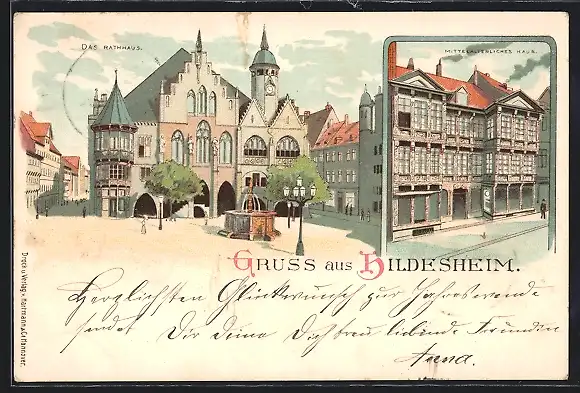 DAS RATHHAUS.
MITTELALTERLICHES HAUS.
GRUSS aus HILDESHEIM.
Herzlichsten Glückwunsch zur Jahreswende
sendet Dir Deine Dich treu liebende Freundin
Anna.
Druck u Verlag v. Herrmann, C. Hannover.